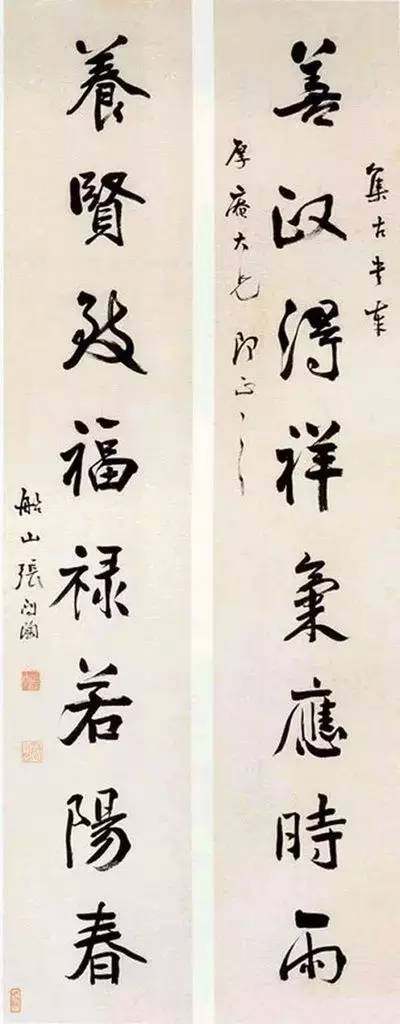 集古書奉
善政得祥氣應時雨
厚庵大兄即正
養賢致福禄若陽春
船山張問陶